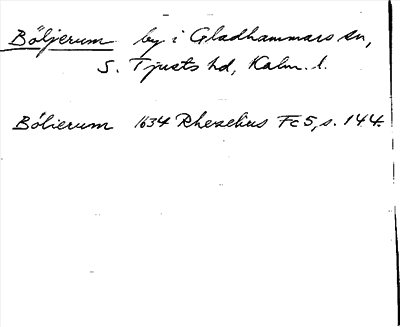 Böljerum by i Gladhammars sn,
S. Tjusts hd, Kalm. l.
Bölierum 1634 Rhezelius Fc 5, s. 144.